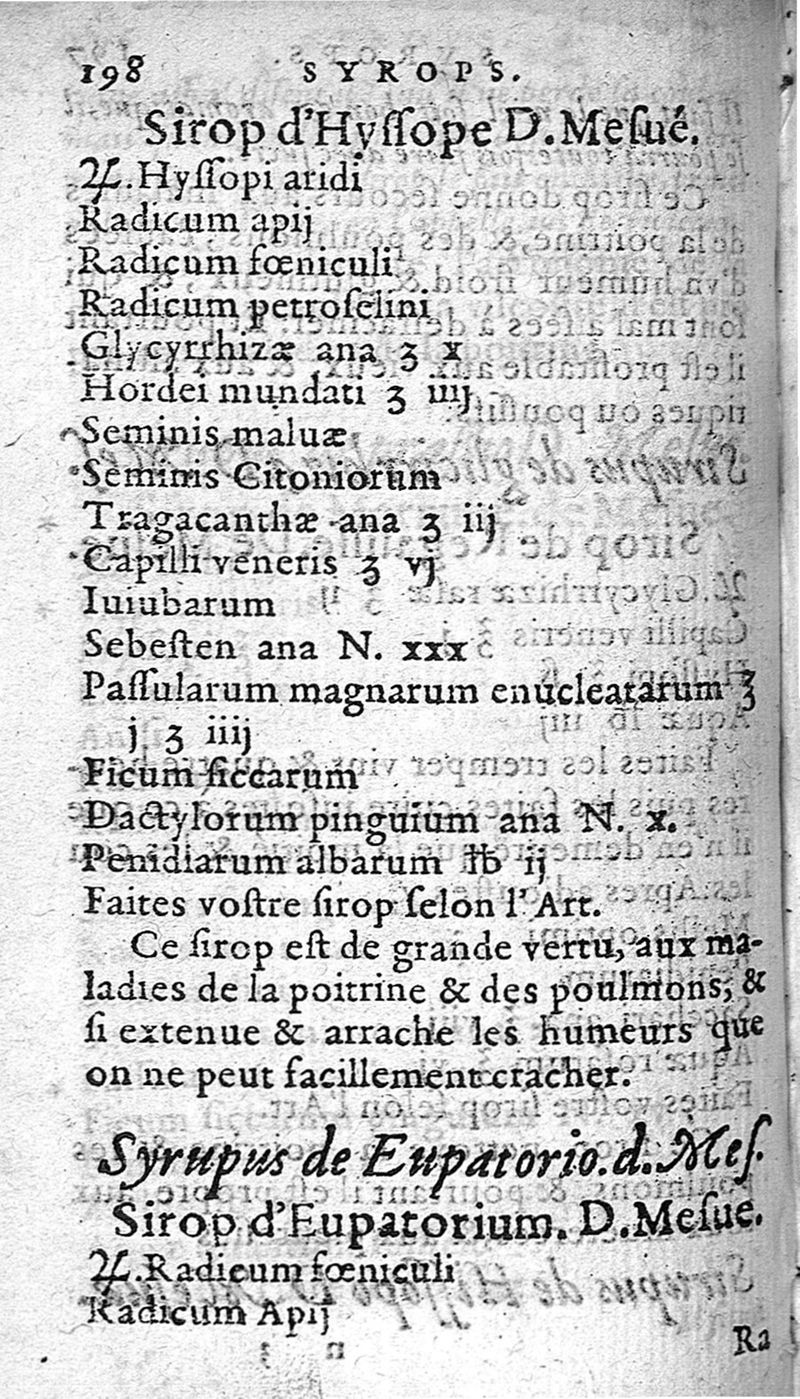 198 SYROPS.
Sirop d'Hyſſope D. Meſué.
♃. Hyſſopi aridi
Radicum apij
Radicum fœniculi
Radicum petroſelini
Glycyrrhizæ ana ʒ x
Hordei mundati ʒ iiij
Seminis maluæ
Seminis Citoniorum
Tragacanthæ ana ʒ iij
Capilli veneris ʒ vj
Iuiubarum
Sebeſten ana N. xxx
Paſſularum magnarum enucleatarum ℥
j ʒ iiij
Ficum ſiccarum
Dactylorum pinguium ana N. x.
Penidiarum albarum ℔ ij
Faites voſtre ſirop ſelon l'Art.
Ce ſirop eſt de grande vertu, aux ma-
ladies de la poitrine & des poulmons, &
ſi extenue & arrache les humeurs que
on ne peut facillement cracher.
Syrupus de Eupatorio. d. Meſ.
Sirop d'Eupatorium. D. Meſue.
♃. Radicum fœniculi
Radicum Apij
Ra